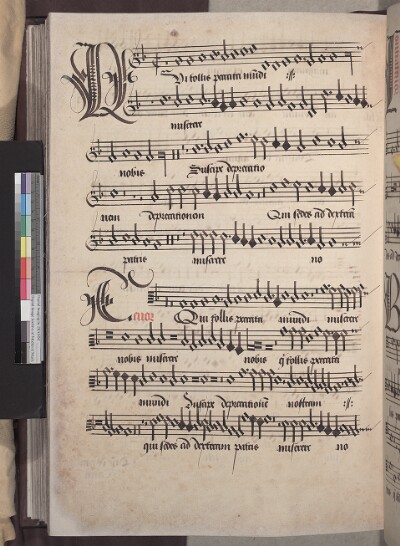 Qui tollis peccata mūdi :||:
miserere
nobis Suscipe deprecatio
nem deprecationem Qui sedes ad dexterā
patris miserere no
Tenor Qui tollis peccata mundi miserere
nobis miserere nobis q tollis peccata
mundi Suscipe deprecationē nostram :||:
qui sedes ad dexteram patris miserere no